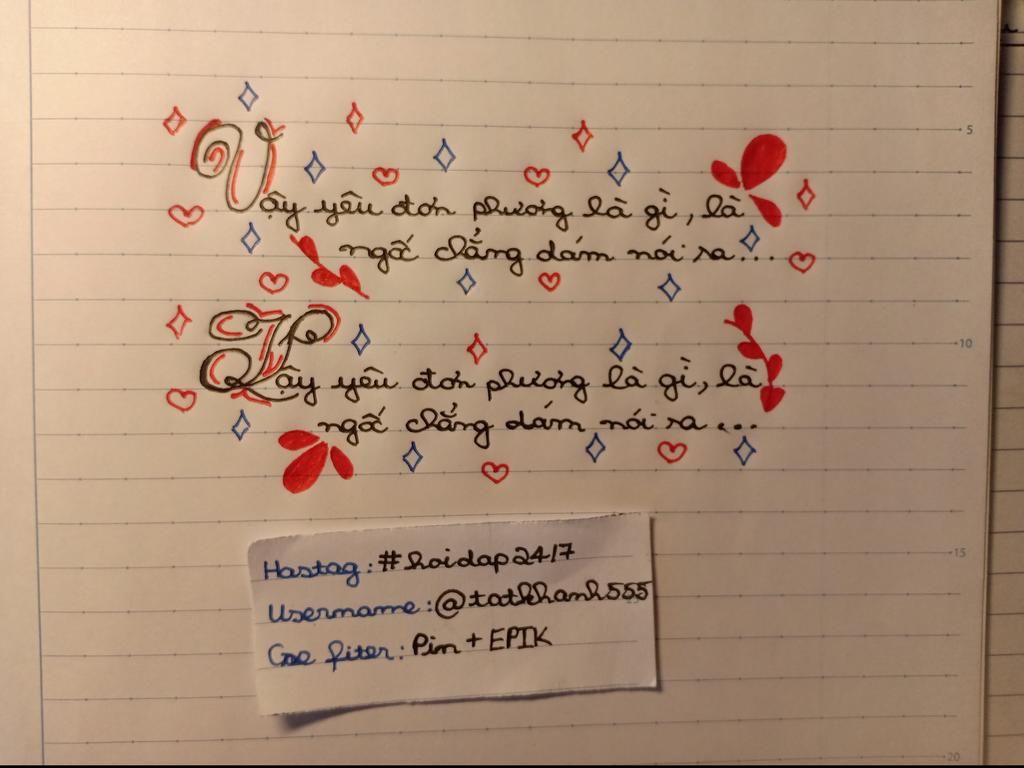 Vậy yêu đơn phương là gì, là
ngố chẳng dám nói ra...
Vậy yêu đơn phương là gì, là
ngố chẳng dám nói ra...
Hastag: #hoidap2417
Username: @tatkhanh555
Coe fiter: Pim + EPIK
5
10
15
20